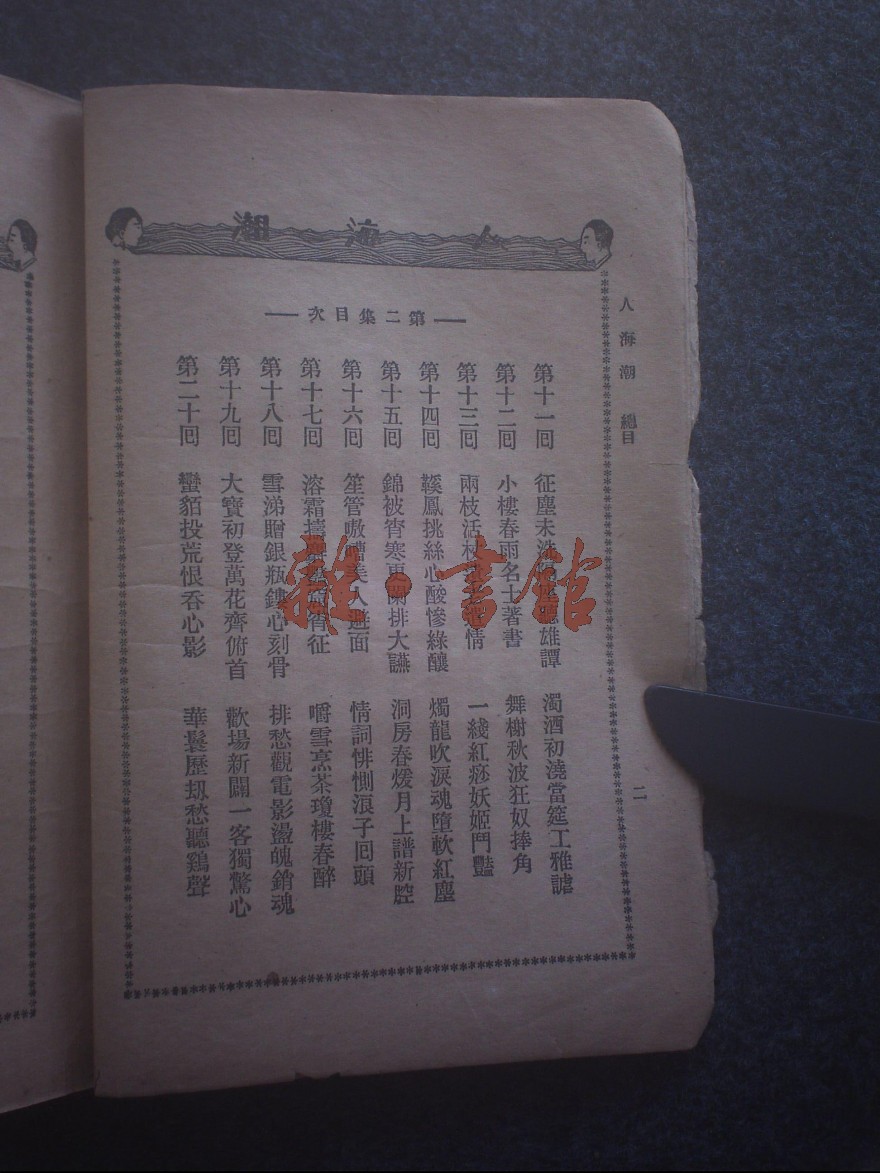 人海潮
人海潮 總目
二
第二集目次
第十一回 征塵未洗 雄譚 濁酒初澆當筵工雅謔
第十二回 小樓春雨名士著書 舞榭秋波狂奴捧角
第十三回 兩枝活 情 一綫紅痧妖姬鬥豔
第十四回 鞵鳳挑絲心酸慘綠釀 燭龍吹淚魂墮軟紅塵
第十五回 錦被宵寒更闌排大讌 洞房春煖月上譜新腔
第十六回 笙管嗷嘈美人避面 情詞悱惻浪子回頭
第十七回 溶霜擣 宵征 嚼雪烹茶瓊樓春醉
第十八回 雪涕贈銀瓶鏤心刻骨 排愁觀電影盪魄銷魂
第十九回 大寶初登萬花齊俯首 歡場新闢一客獨驚心
第二十回 蠻貊投荒恨吞心影 華鬘歷劫愁聽鷄聲
雜·書館